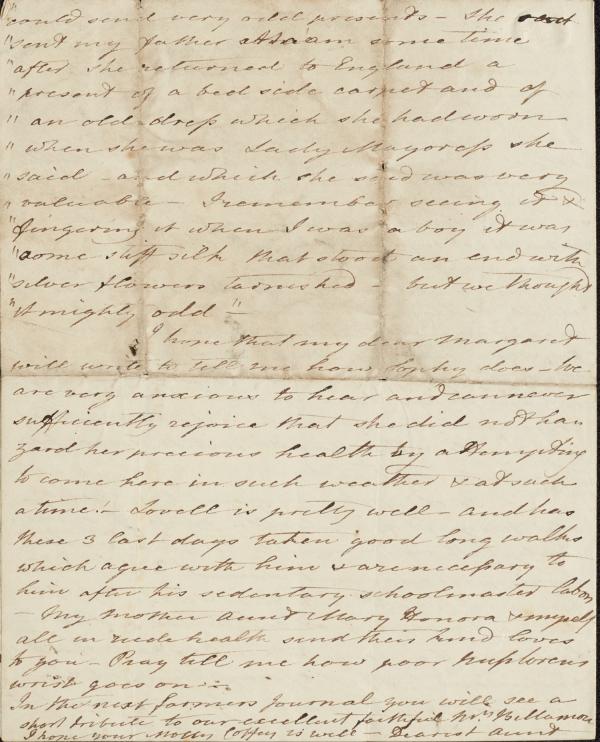 "could send very odd presents – she
"sent my father Adam some time
"after she returned to England a
"present of a bed side carpet and of
" an old dress which she had worn
" when she was Lady Mayoress she
" said – and which she said was very
" valuable – I remember seeing it &
"fingering it when I was a boy it was
"some stiff silk that stood an end with
"silver flowers tarnished – but we thought
"it mighty odd" –
I hope that my dear Margaret
will write to tell me how Sophy does – We
are very anxious to hear and cannever
sufficiently rejoice that she did not ha
zard her precious health by attempting
to come here in such weather & at such
a time! – Lovell is pretty well – and has
these 3 last days taken good long walks
which agree with him & are necessary to
him after his sedentary schoolmaster labors
– My mother Aunt Mary Honora & myself
all in rude health send their kind loves
to you – Pray tell me how poor
wrist goes on –
In the next farmers Journal you will see a
short tribute to our excellent faithful Mrs Billamore
I hope your Molly Coffey is well – Dearest Aunt